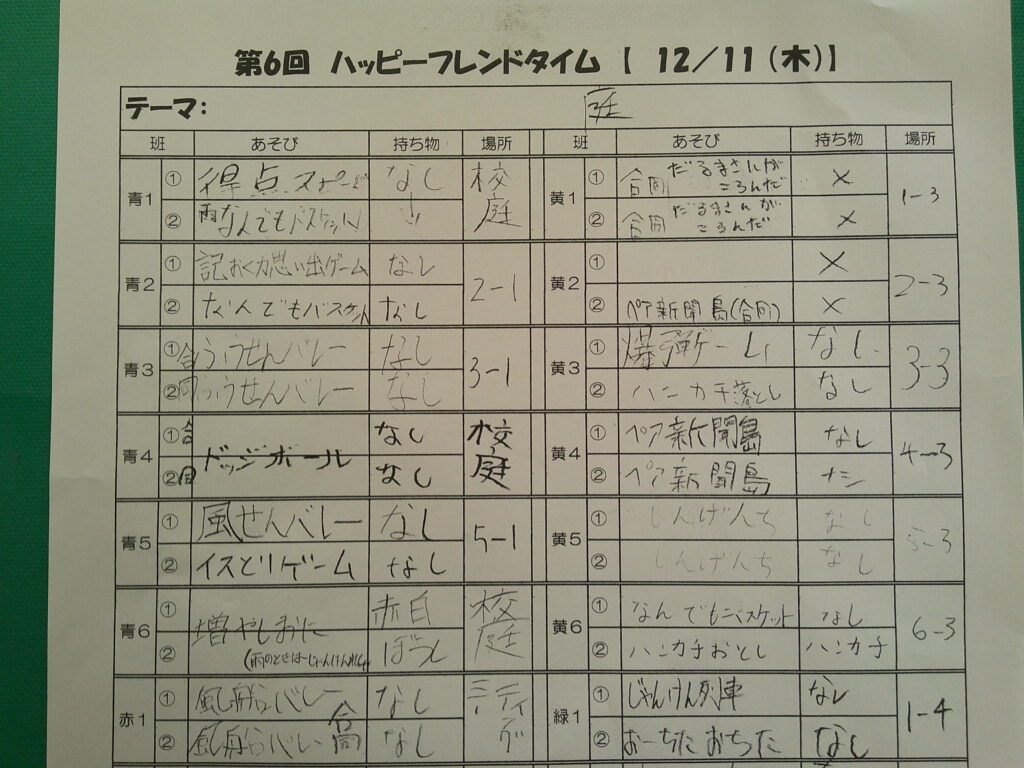 第6回 ハッピーフレンドタイム 【 12／11（木）】
テーマ：
班
班 あそび 持ち物 場所 班 あそび 持ち物 場所
青1 ① 得点スピード なし 校庭
② 雨なんでもバスケット ↓
黄1 ① 合同 だるまさんがころんだ × 1-3
② 合同 だるまさんがころんだ ×
青2 ① 記おく力思い出ゲーム なし 2-1
② なんでもバスケット なし
黄2 ① × 2-3
② ペア新聞島(合同) ×
青3 ①合 ふうせんバレー なし 3-1
②同 ふうせんバレー なし
黄3 ① 爆弾ゲーム なし 3-3
② ハンカチ落とし なし
青4 ①合 ドッジボール なし 校庭
②同 なし
黄4 ① ペア新聞島 なし 4-3
② ペア新聞島 ナシ
青5 ① 風せんバレー なし 5-1
② イスとりゲーム なし
黄5 ① しんげんち なし 5-3
② しんげんち なし
青6 ① 増やしおに 赤白 校庭
② (雨のときはじゃんけんれっ ぼうし
黄6 ① なんでもバスケット なし 6-3
② ハンカチおとし ハンカチ
赤1 ① 風船バレー なし
② 風船バレー 合同 なし
緑1 ① じゃんけん列車 なし 1-4
② おーちたおちた なし